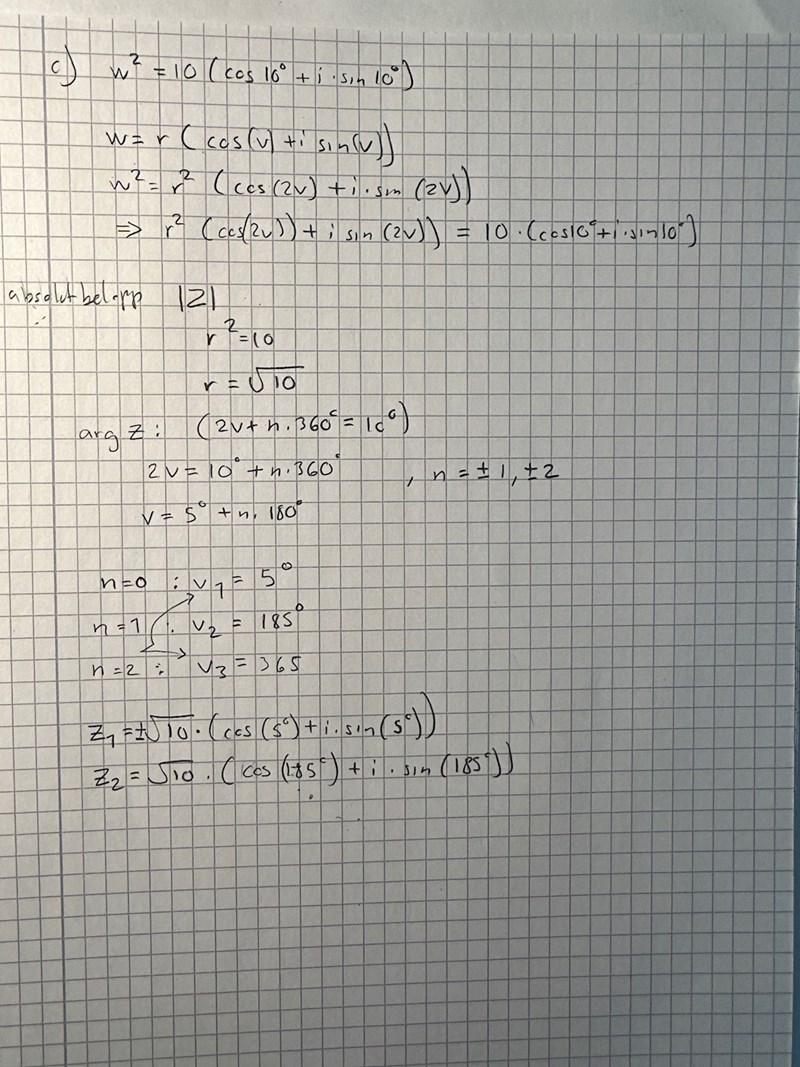 c) w² = 10 (cos 10° + i · sin 10°)
w = r (cos(v) + i sin(v))
w² = r² (cos(2v) + i · sin (2v))
⇒ r² (cos(2v)) + i sin (2v)) = 10 · (cos10° + i · sin10°)
absolutbelopp |Z|
r² = 10
r = √10
arg Z : (2v + n · 360° = 10°)
2v = 10° + n · 360° , n = ±1, ±2
v = 5° + n · 180°
n=0 : v₁ = 5°
n=1 : v₂ = 185°
n=2 : v₃ = 365
Z₁ = ±√10 · (cos (5°) + i · sin (5°))
Z₂ = √10 · (cos (185°) + i · sin (185°))